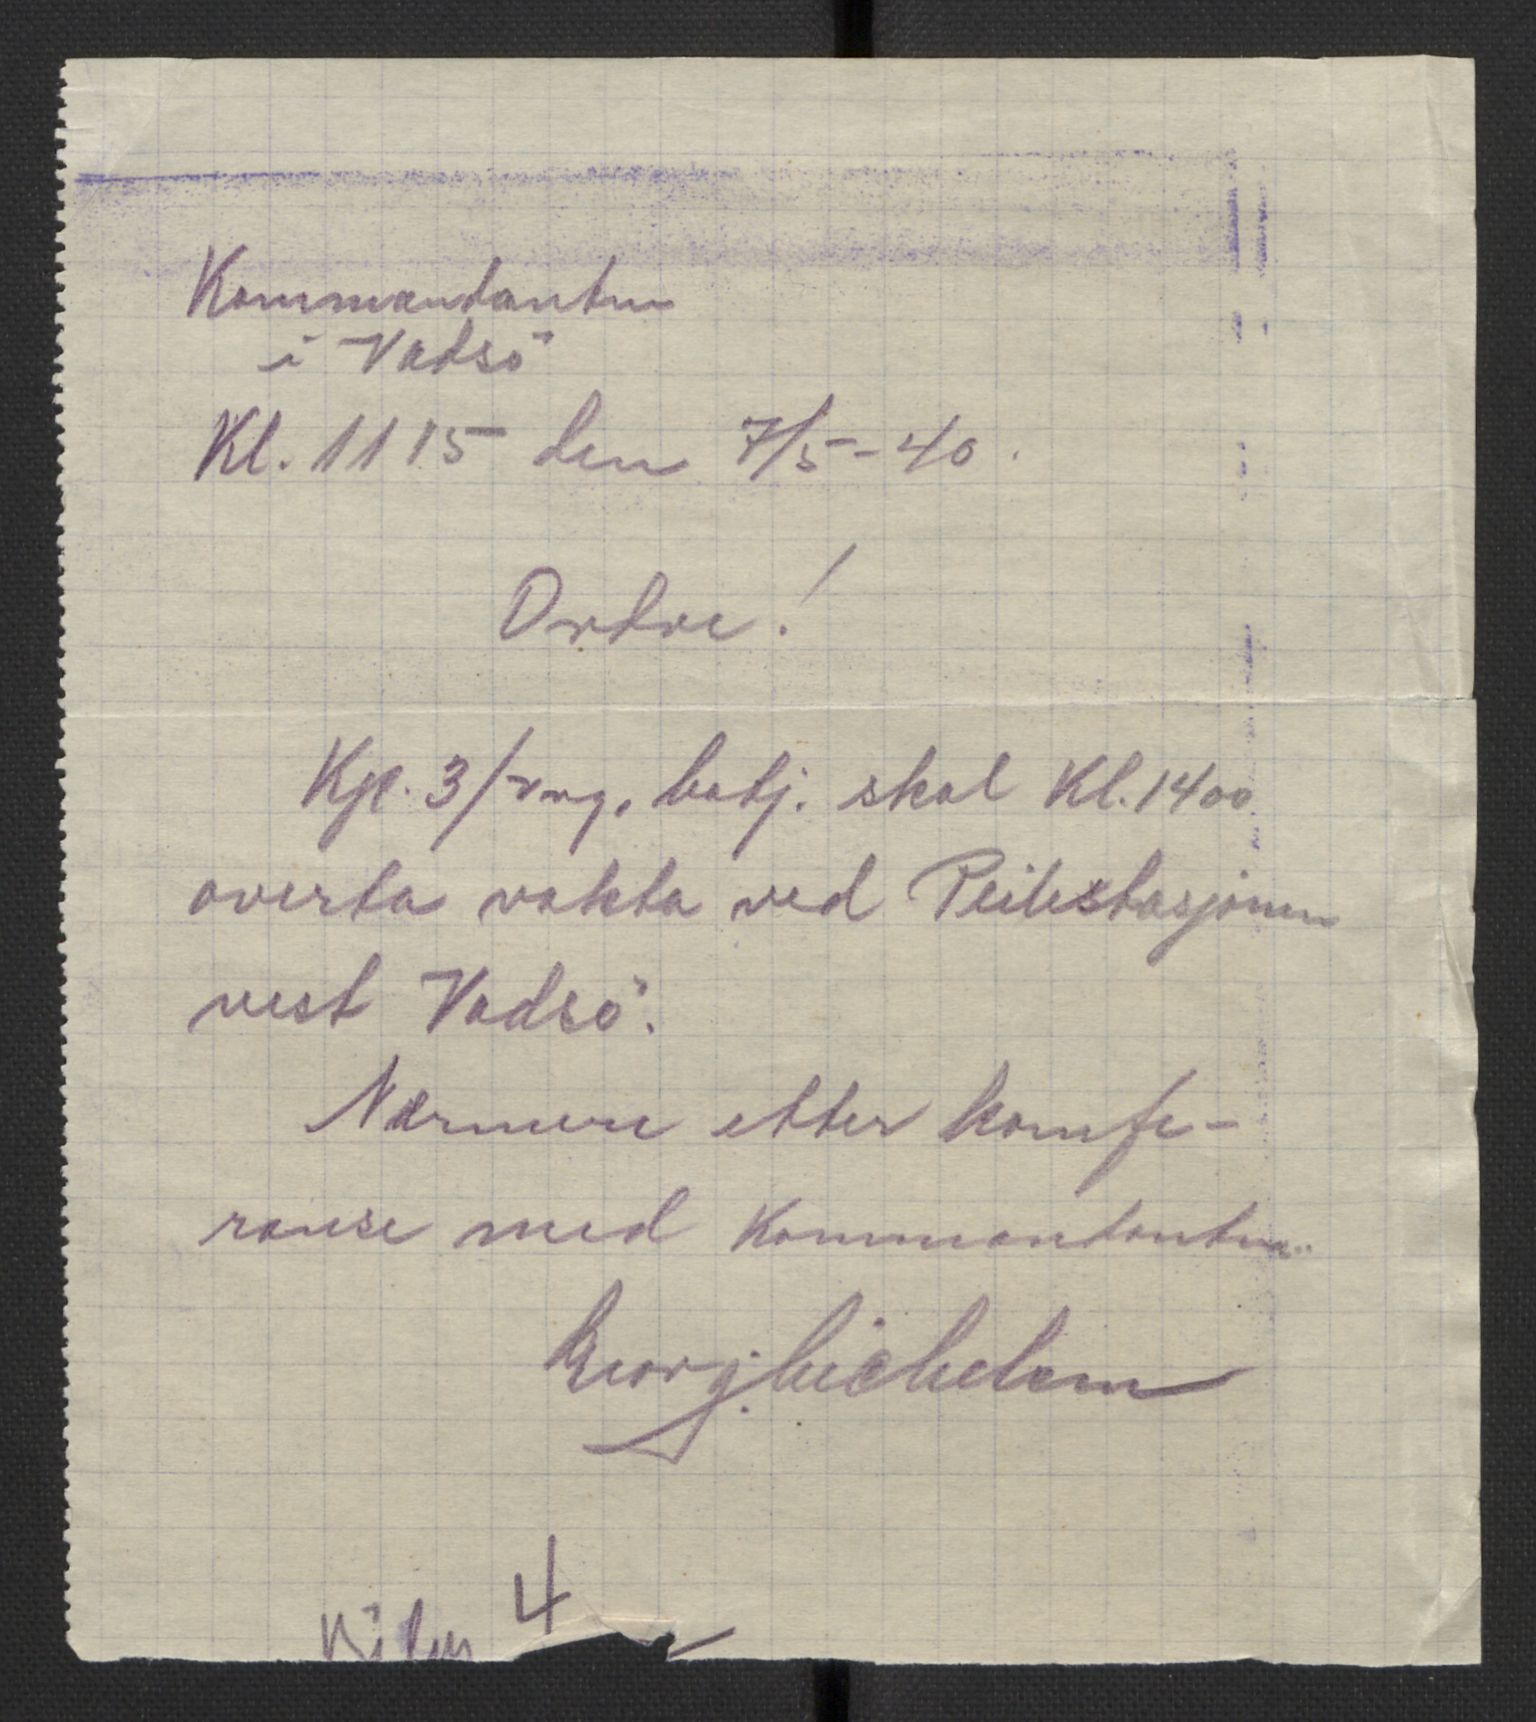 Kommandanten
i Vadsö
Kl. 1115 den 7/5-40.
Ordre!
Kp. 3/Vrg. batj. skal Kl. 1400
overta vakta ved Peilestasjonen
vest Vadsö.
Nærmere etter konfe-
ranse med Kommandanten.
Georg
4